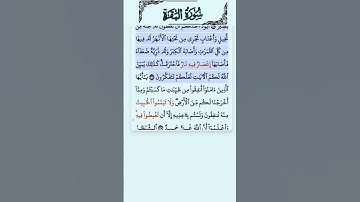 سُورَةُ البَقَرَةِ
نَّخِيلٍ وَأَعْنَابٍ تَجْرِى مِن تَحْتِهَا ٱلْأَنْهَٰرُ لَهُۥ فِيهَا
مِن كُلِّ ٱلثَّمَرَٰتِ وَأَصَابَهُ ٱلْكِبَرُ وَلَهُۥ ذُرِّيَّةٌ ضُعَفَآءُ
فَأَصَابَهَآ إِعْصَارٌ فِيهِ نَارٌ فَٱحْتَرَقَتْ كَذَٰلِكَ يُبَيِّنُ
ٱللَّهُ لَكُمُ ٱلْءَايَٰتِ لَعَلَّكُمْ تَتَفَكَّرُونَ ۝ يَٰٓأَيُّهَا
ٱلَّذِينَ ءَامَنُوٓا۟ أَنفِقُوا۟ مِن طَيِّبَٰتِ مَا كَسَبْتُمْ وَمِمَّآ
أَخْرَجْنَا لَكُم مِّنَ ٱلْأَرْضِ وَلَا تَيَمَّمُوا۟ ٱلْخَبِيثَ
مِنْهُ تُنفِقُونَ وَلَسْتُم بِـَٔاخِذِيهِ إِلَّآ أَن تُغْمِضُوا۟ فِيهِ